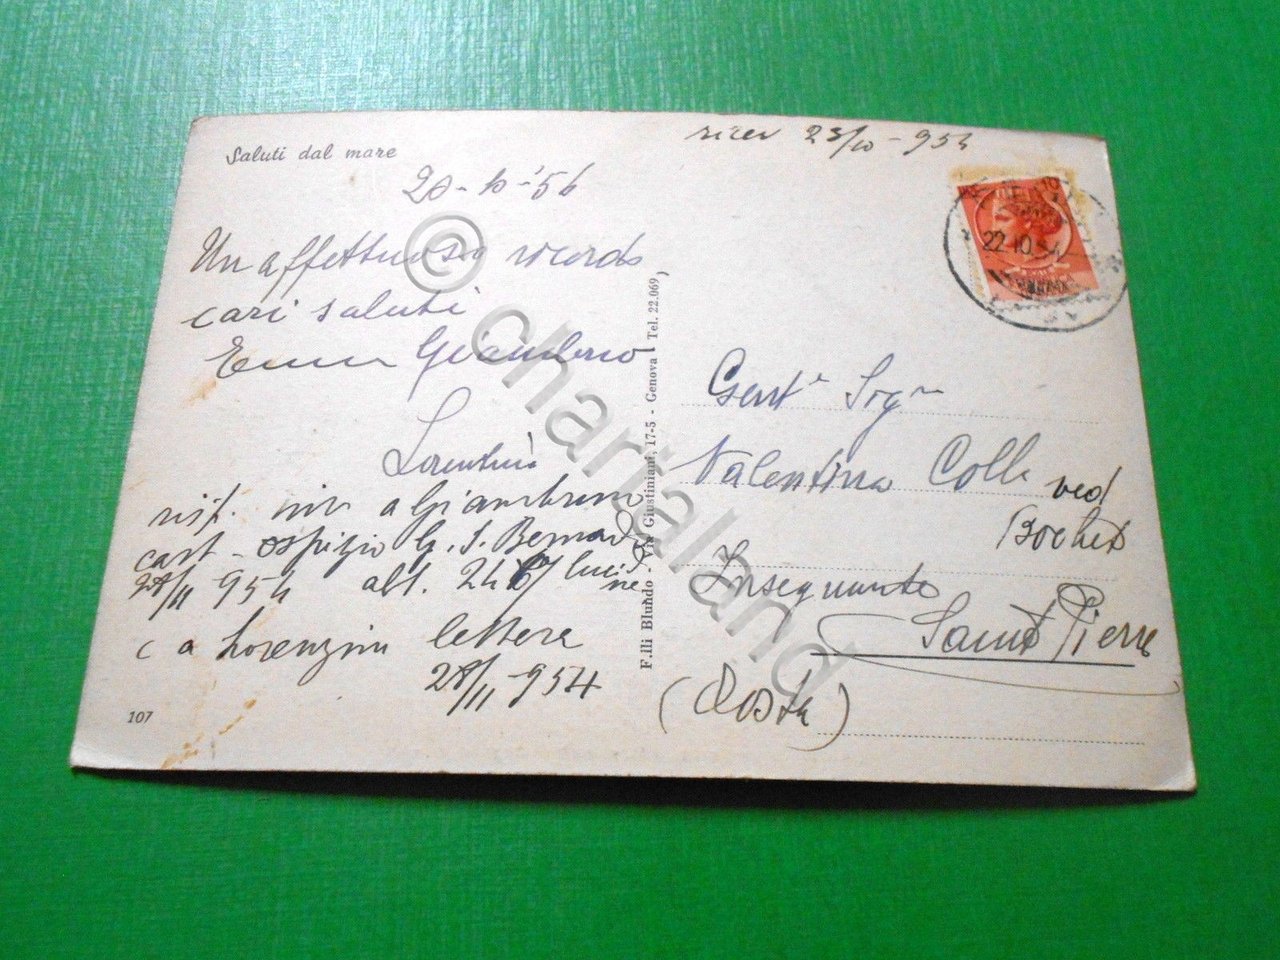 Saluti dal mare
ricev 23/10-954
20-10-'54
22.10.54
Un affettuoso ricordo
cari saluti
Emma Giambruno
Lorenzini
risp. a Giambruno
cart - ospizio G. S. Bernardo
28/11 954 alt. 2467
c a Lorenzini lettera
28/11-954
107
F.lli Blundo - Via Giustiniani, 17-5 - Genova (Tel. 22.069)
Gent.a Sig.ra
Valentina Colle ved
Bochet
Insegnante
Saint Pierre
(Aosta)
© charialand